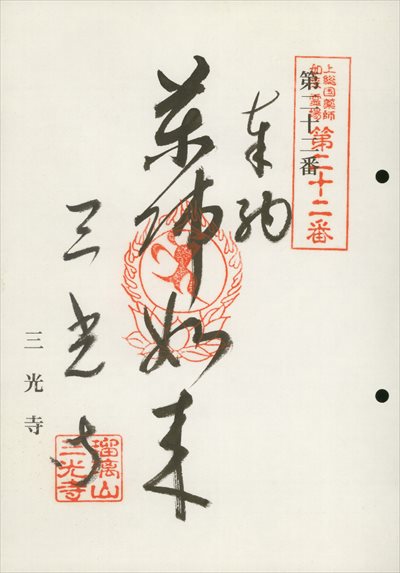 上総国薬師
如来霊場
第二十二番
第二十二番
奉納
薬師如来
三光寺
瑠璃山
三光寺
三光寺